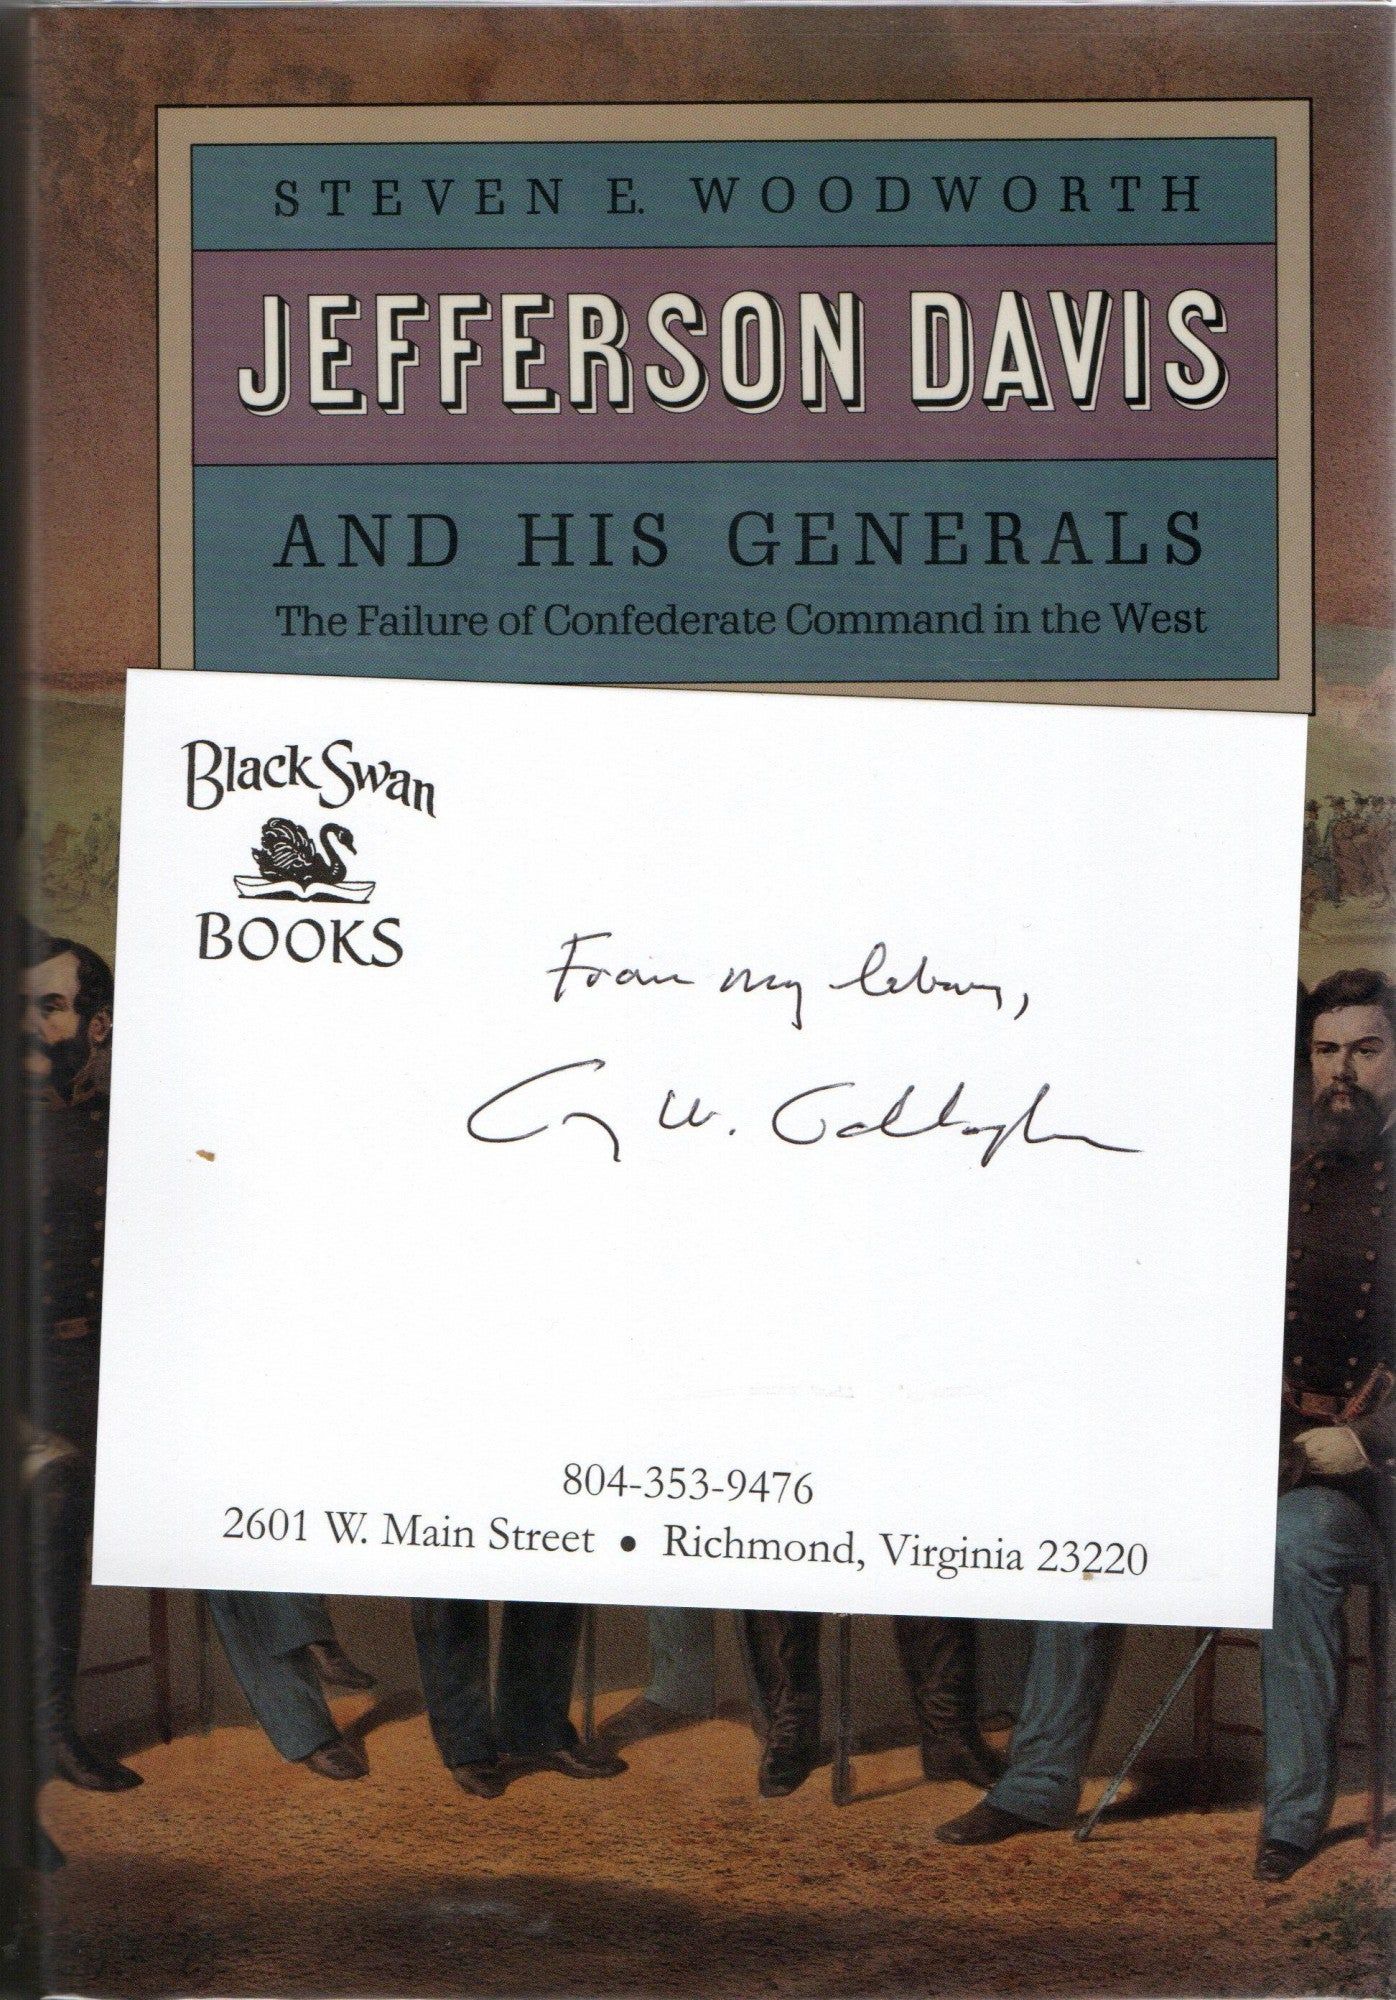 STEVEN E. WOODWORTH
JEFFERSON DAVIS
AND HIS GENERALS
The Failure of Confederate Command in the West
Black Swan
BOOKS
From my library,
Gary W. Gallagher
804-353-9476
2601 W. Main Street • Richmond, Virginia 23220